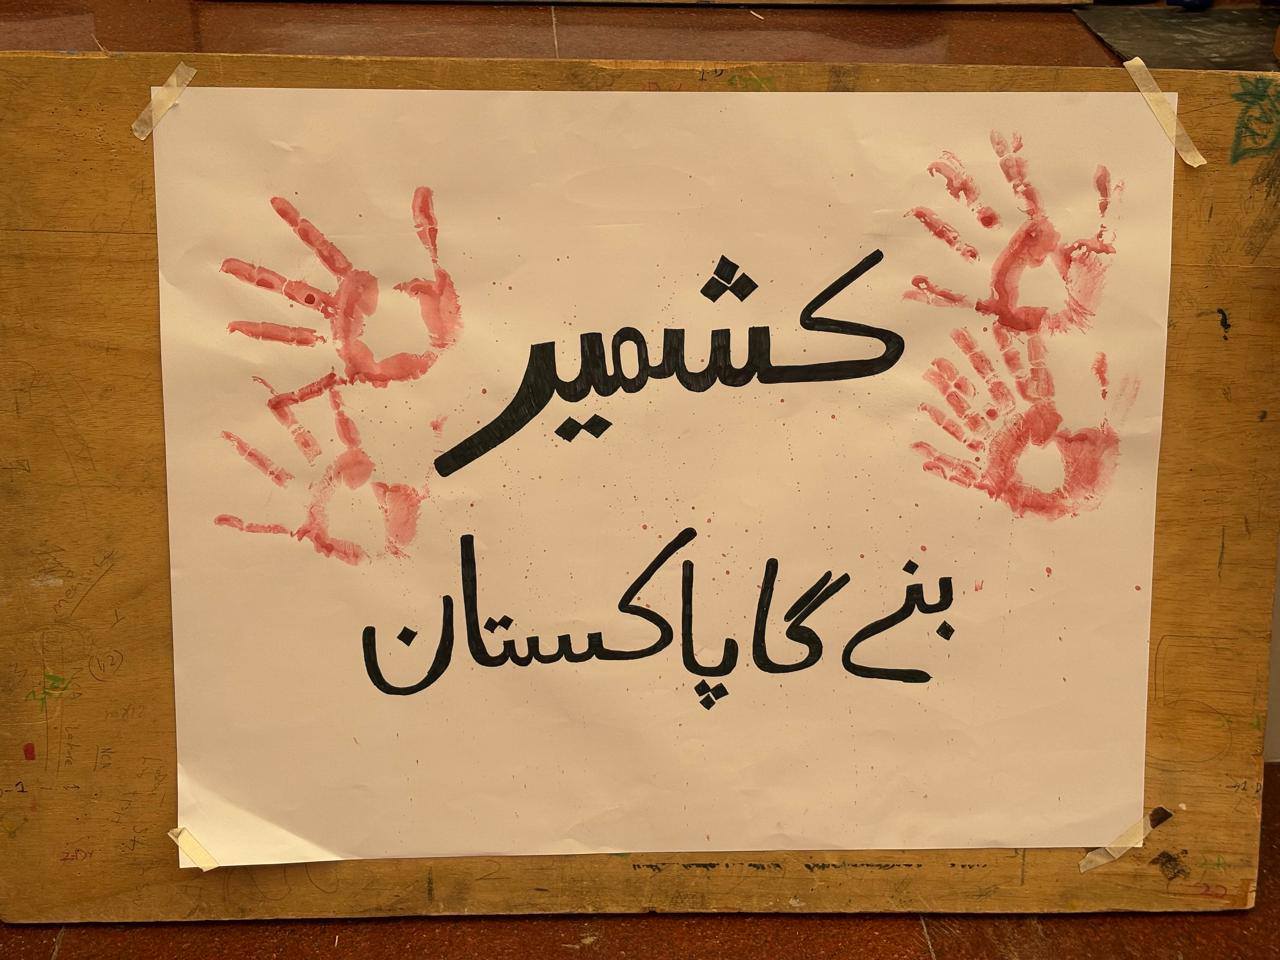 کشمیر
بنے گا پاکستان